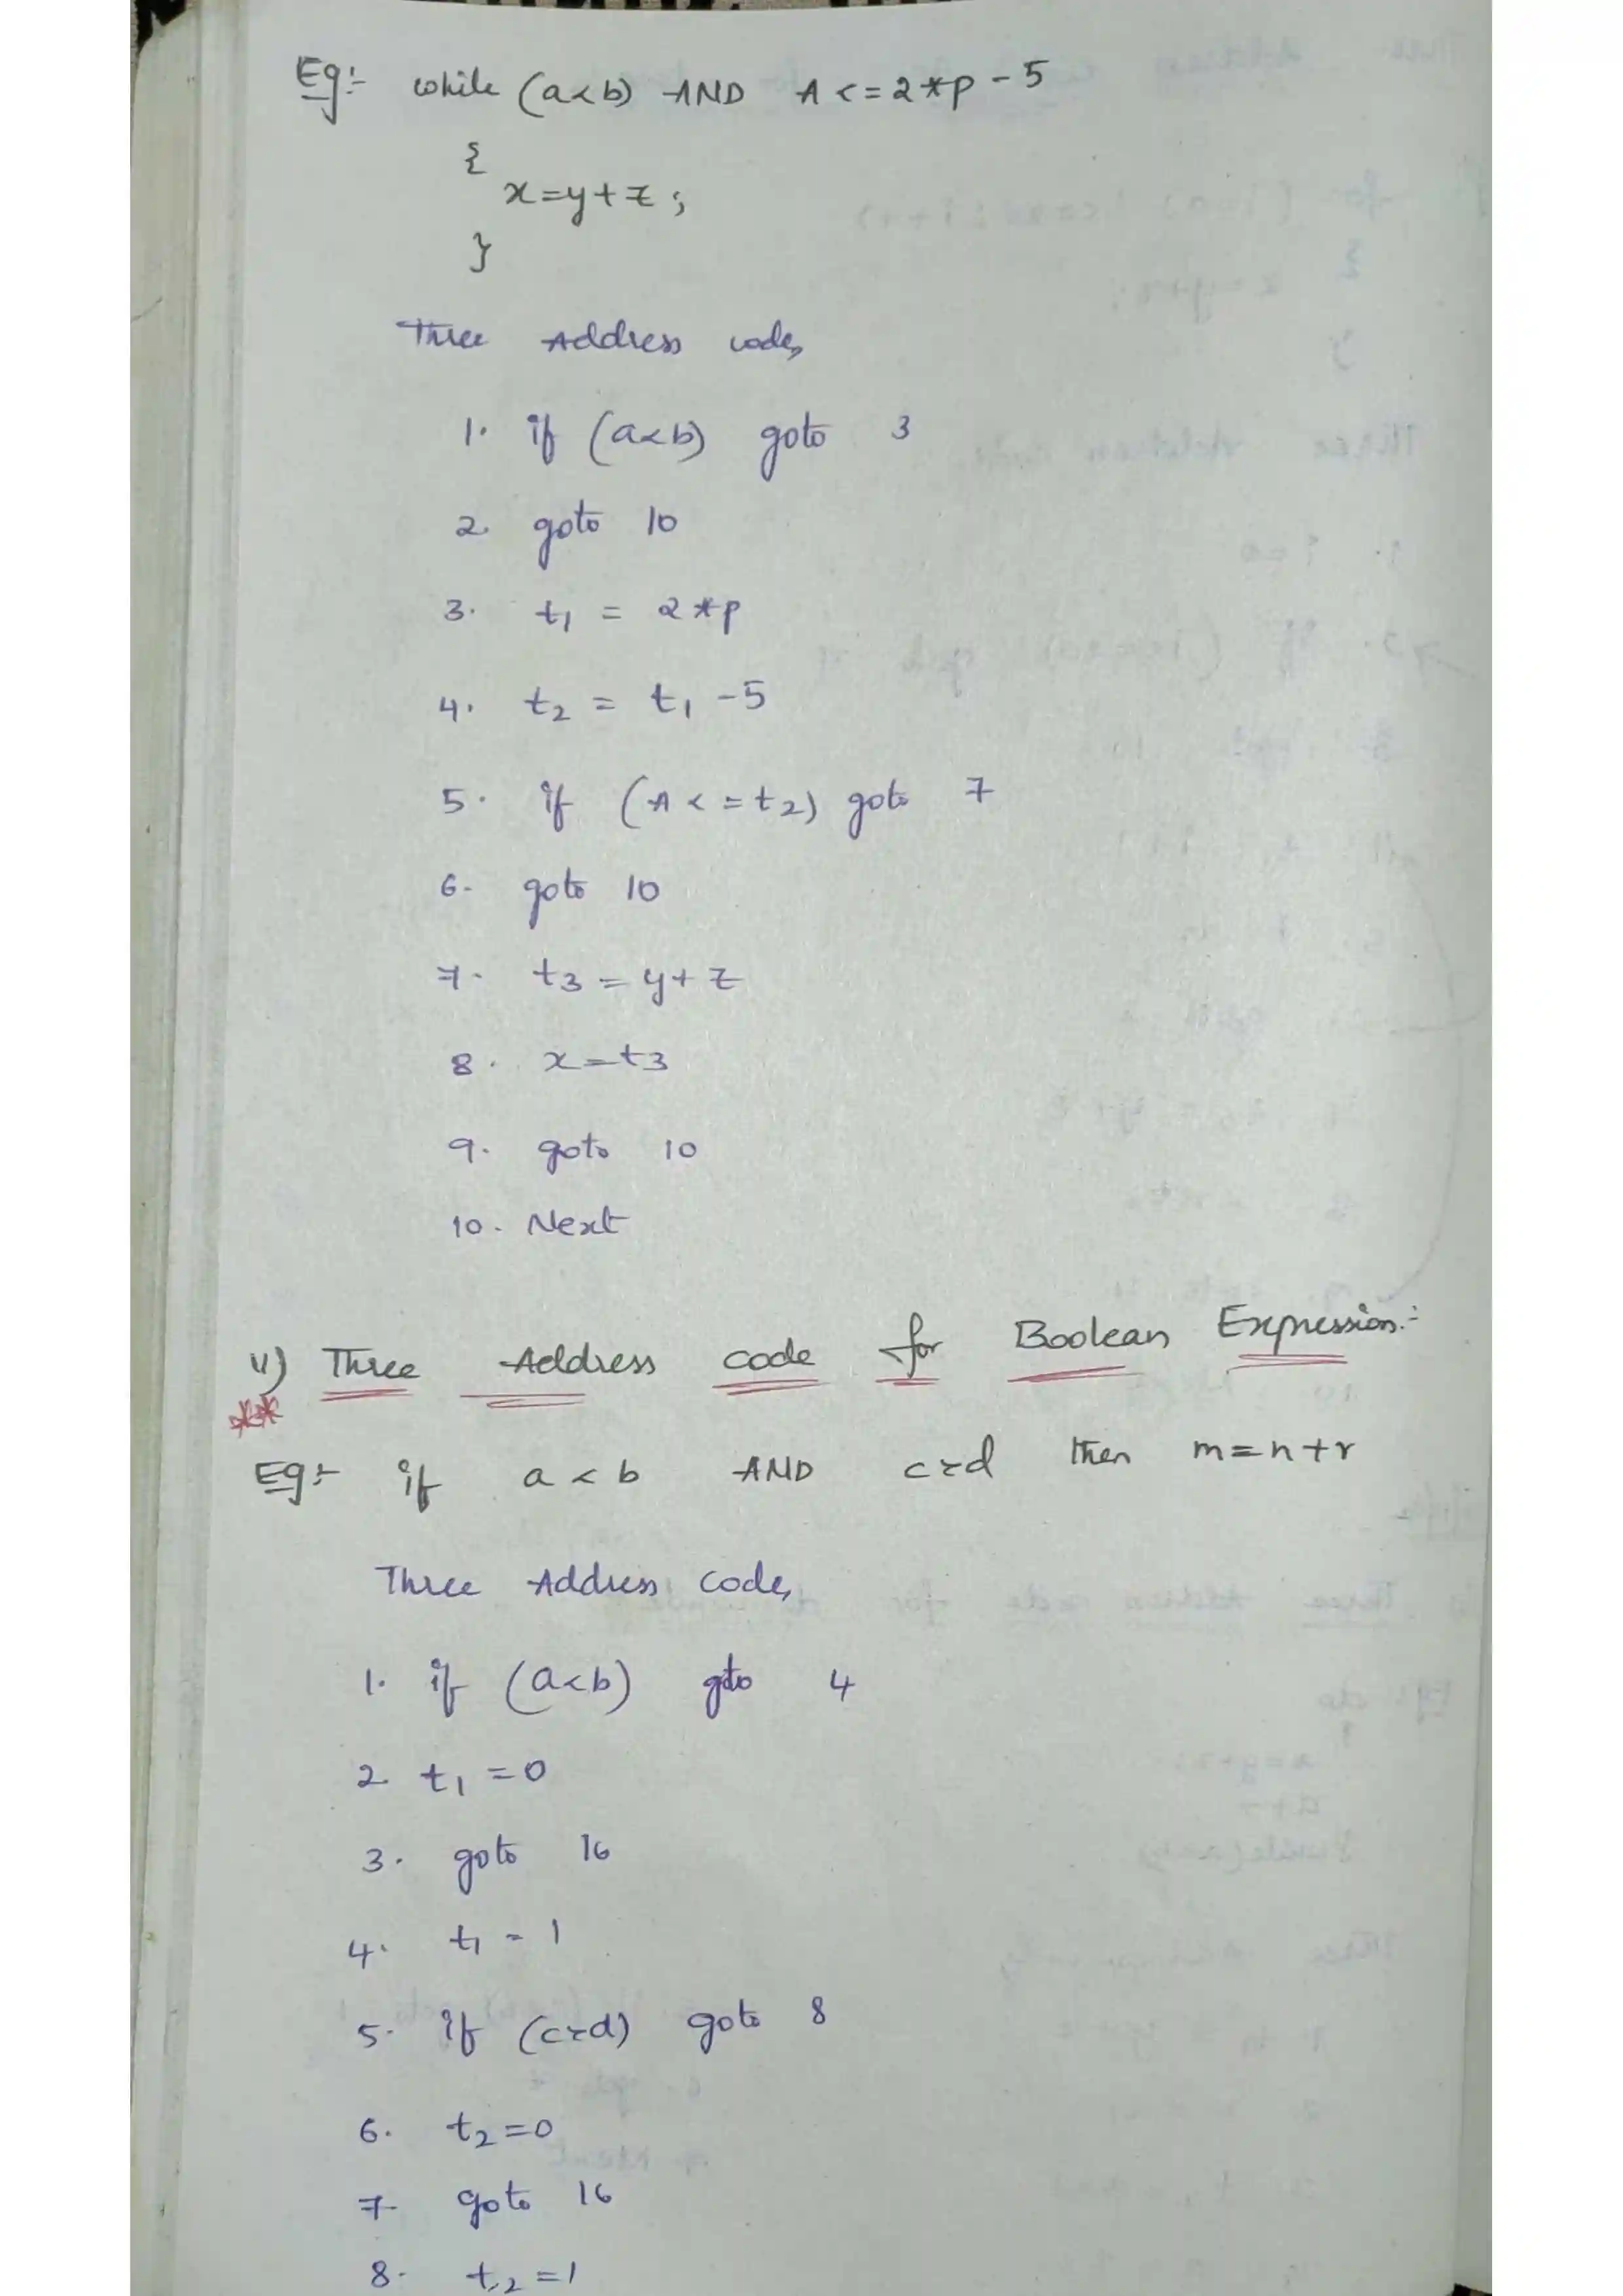 Eg:- while (a<b) AND A<=2*p-5
{
x=y+z;
}
Three Address code,
1. if (a<b) goto 3
2. goto 10
3. t1 = 2*p
4. t2 = t1 -5
5. if (A<=t2) goto 7
6. goto 10
7. t3=y+z
8. x=t3
9. goto 10
10. Next
Three Address code for Boolean Expression:-
**
Eg:- if a<b AND c>d then m=n+r
Three Address code,
1. if (a<b) goto 4
2. t1=0
3. goto 16
4. t1=1
5. if (c>d) goto 8
6. t2=0
7. goto 16
8. t2=1